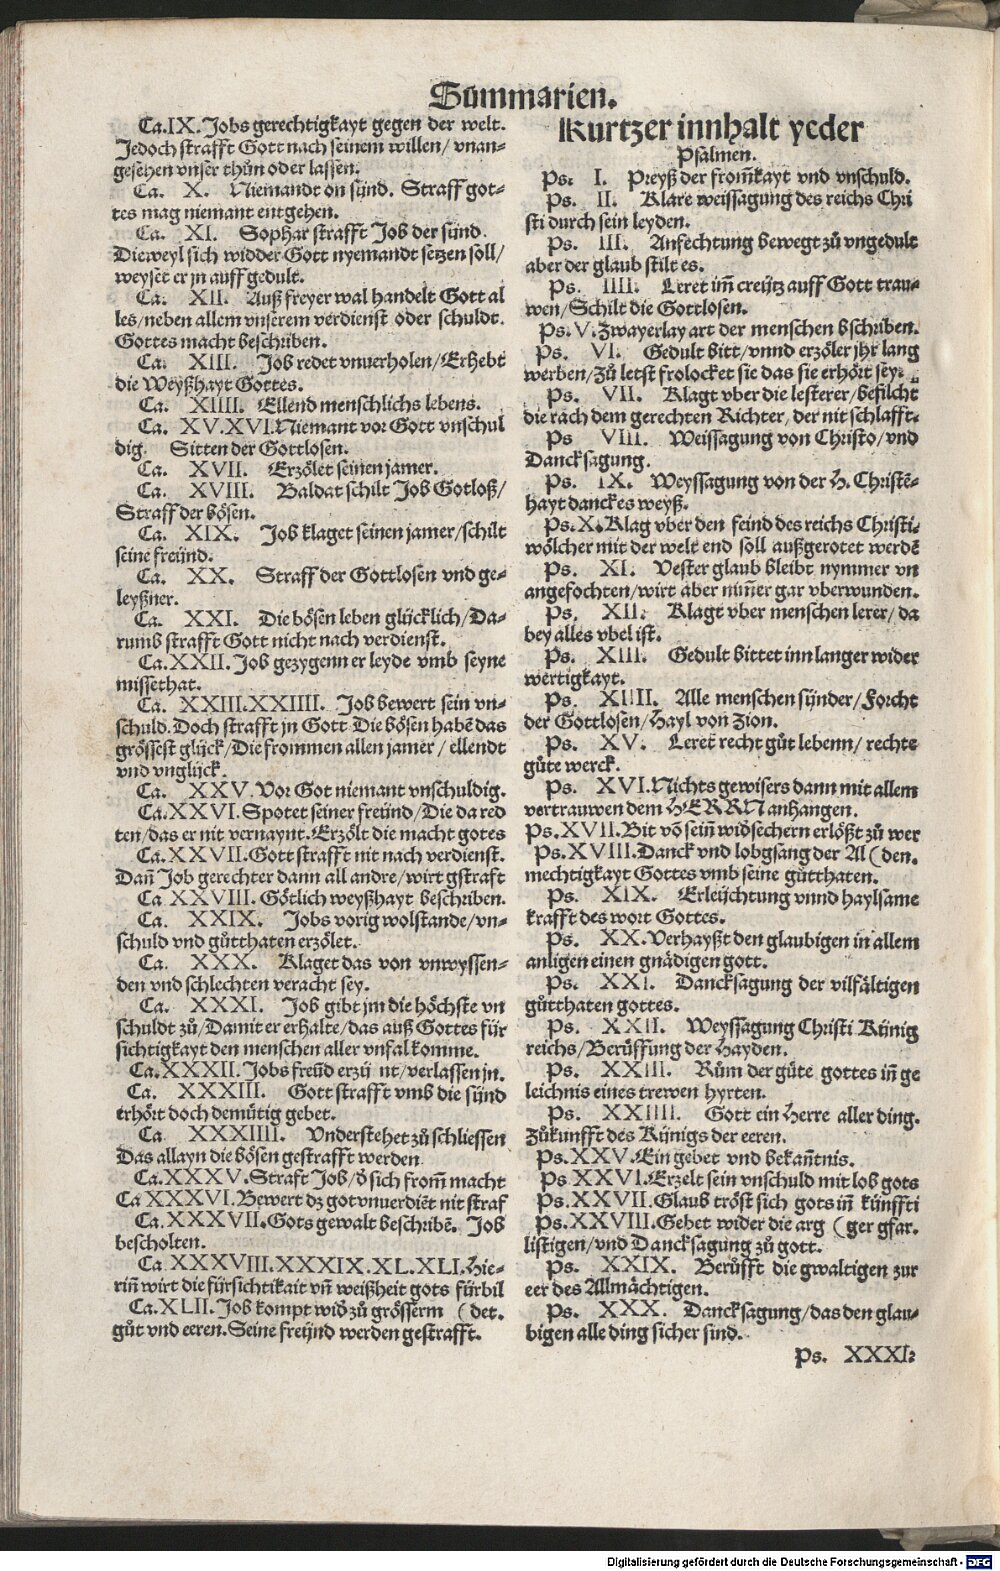 Summarien.
Ca.IX. Jobs gerechtigkayt gegen der welt.
Jedoch strafft Gott nach seinem willen/ vnan-
gesehen vnser thůn oder lassen.
Ca. X. Niemandt on sünd. Straff got-
tes mag niemant entgehen.
Ca. XI. Sophar strafft Job der sünd.
Dieweyl sich widder Gott nyemandt setzen soll/
weyset er jn auff gedult.
Ca. XII. Auß freyer wal handelt Gott al
les/neben allem vnserem verdienst oder schuldt.
Gottes macht beschriben.
Ca. XIII. Job redet vnuerholen/Erhebt
die Weyßhayt Gottes.
Ca. XIIII. Ellend menschlichs lebens.
Ca. XV.XVI.Niemant vor Gott vnschul
dig. Sitten der Gottlosen.
Ca. XVII. Erzölet seinen jamer.
Ca. XVIII. Baldat schilt Job Gotloß/
Straff der bösen.
Ca. XIX. Job klaget seinen jamer/schilt
seine freünd.
Ca. XX. Straff der Gottlosen vnd ge-
leyßner.
Ca. XXI. Die bösen leben glücklich/Da-
rumb strafft Gott nicht nach verdienst.
Ca.XXII. Job gezygenn er leyde vmb seyne
missethat.
Ca. XXIII.XXIIII. Job bewert sein vn-
schuld. Doch strafft jn Gott Die bösen habē das
grössest glück/Die frommen allen jamer/ ellendt
vnd vnglück.
Ca. XXV. Vor Got niemant vnschuldig.
Ca.XXVI. Spotet seiner freünd/Die da red
ten/das er nit vernaynt. Erzölt die macht gotes
Ca.XXVII. Gott strafft nit nach verdienst.
Dañ Job gerechter dann all andre/wirt gstraft
Ca XXVIII. Götlich weyßhayt beschriben.
Ca. XXIX. Jobs vorig wolstande/vn-
schuld vnd gůtthaten erzölet.
Ca. XXX. Klaget das von vnwyssen-
den vnd schlechten veracht sey.
Ca. XXXI. Job gibt jm die höchste vn
schuldt zů/Damit er erhalte/das auß Gottes für
sichtigkayt den menschen aller vnfal komme.
Ca.XXXII. Jobs freüd erzü nt/verlassen jn.
Ca. XXXIII. Gott strafft vmb die sünd
erhört doch demütig gebet.
Ca XXXIIII. Vnderstehet zů schliessen
Das allayn die bösen gestrafft werden
Ca.XXXV. Straft Job/ď sich from̃ macht
Ca XXXVI. Bewert dz got vnuerdiēt nit straf
Ca.XXXVII. Gots gewalt beschribē. Job
bescholten.
Ca. XXXVIII.XXXIX.XL.XLI. Hie-
riñ wirt die fürsichtikait vñ weißheit gots fürbil
Ca.XLII. Job kompt wiď zů grösserm (det.
gůt vnd eeren. Seine freünd werden gestrafft.
Kurtzer innhalt yeder
Psalmen.
Ps. I. Preyß der from̃kayt vnd vnschuld.
Ps. II. Klare weissagung des reichs Chri
sti durch sein leyden.
Ps. III. Anfechtung bewegt zů vngedult
aber der glaub stilt es.
Ps. IIII. Leret im̃ creütz auff Gott trau-
wen/Schilt die Gottlosen.
Ps. V. Zwayerlay art der menschen bschriben.
Ps. VI. Gedult bitt/vnnd erzöler jhr lang
werben/Zů letst frolocket sie das sie erhört sey.
Ps. VII. Klagt vber die lesterer/befilcht
die rach dem gerechten Richter, der nit schlafft.
Ps VIII. Weissagung von Christo/vnd
Dancksagung.
Ps. IX. Weyssagung von der H. Christē-
hayt danckes weyß.
Ps. X. Klag vber den feind des reichs Christi-
wölcher mit der welt end soll außgerotet werdē
Ps. XI. Vester glaub bleibt nymmer vn
angefochten/wirt aber nim̃er gar vberwunden.
Ps. XII. Klagt vber menschen lerer/da
bey alles vbel ist.
Ps. XIII. Gedult bittet inn langer wider
wertigkayt.
Ps. XIIII. Alle menschen sünder/Forcht
der Gottlosen/Hayl von Zion.
Ps. XV. Leret recht gůt lebenn/rechte
gůte werck.
Ps. XVI. Nichts gewisers dann mit allem
vertrauwen dem HERRN anhangen.
Ps.XVII. Bit vō sein̄ wiďsechern erlößt zů wer
Ps.XVIII. Danck vnd lobgsang der Al (den.
mechtigkayt Gottes vmb seine gůtthaten.
Ps. XIX. Erleüchtung vnnd haylsame
krafft des wort Gottes.
Ps. XX. Verhayßt den glaubigen in allem
anligen einen gnädigen gott.
Ps. XXI. Dancksagung der vilfältigen
gůtthaten gottes.
Ps. XXII. Weyssagung Christi Künig
reichs/Berůffung der Hayden.
Ps. XXIII. Rům der güte gottes iñ ge
leichnis eines trewen hyrten.
Ps. XXIIII. Gott ein Herre aller ding.
Zůkunfft des Künigs der eeren.
Ps.XXV. Ein gebet vnd bekañtnis.
Ps XXVI. Erzelt sein vnschuld mit lob gots
Ps.XXVII. Glaub tröst sich gots im̃ künffti
Ps.XXVIII. Gebet wider die arg (ger gfar.
listigen/vnd Dancksagung zů gott.
Ps. XXIX. Berůfft die gwaltigen zur
eer des Allmächtigen.
Ps. XXX. Dancksagung/das den glau-
bigen alle ding sicher sind.
Ps. XXXI.
Digitalisierung gefördert durch die Deutsche Forschungsgemeinschaft - DFG